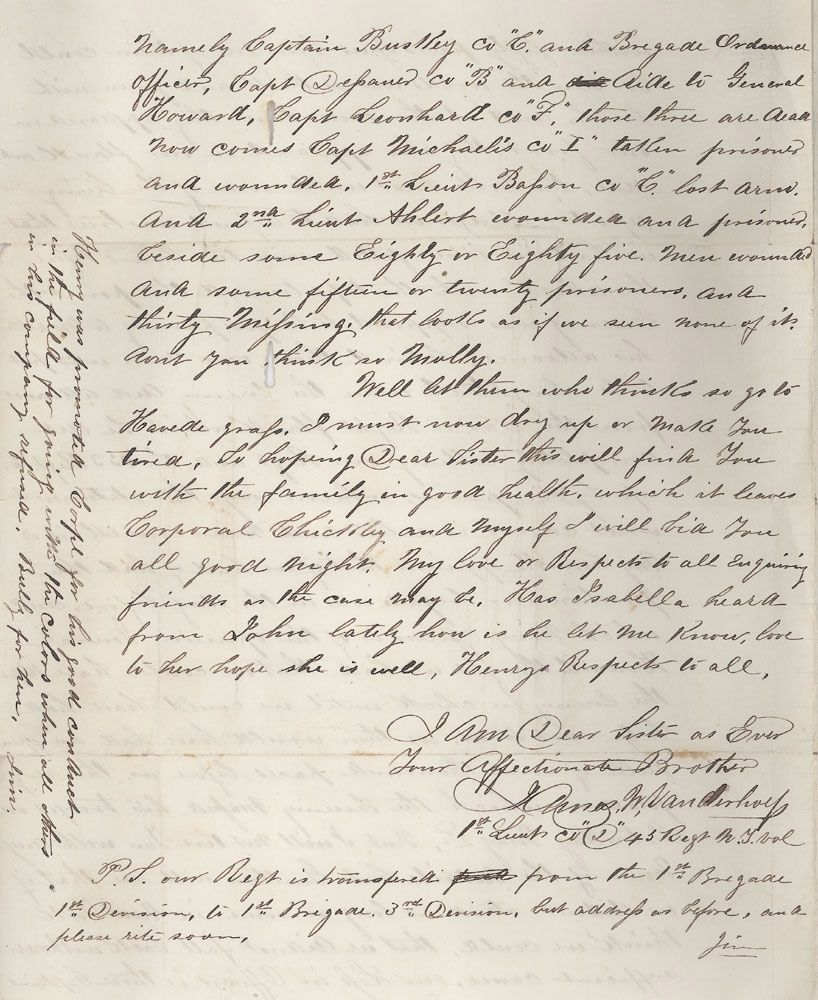 namely Captain Buskey co "C." and Brigade Ordanance
officer, Capt Dessauer co "B" and Aide to General
Howard, Capt Leonhard co "F," those three are dead
now comes Capt Michaelis co "I" taken prisoner
and wounded. 1st Lieut Basson co "C." lost arm.
and 2nd Lieut Ahlert wounded and prisoner,
beside some Eighty or Eighty five. Men wounded
and some fifteen or twenty prisoners, and
thirty Missing. that looks as if we seen none of it.
dont you think so Molly.
Well let them who thinks so go to
grass. I must now dry up or make You
tired, So hoping Dear Sister this will find You
with the family in good health. which it leaves
Corporal and myself I will bid You
all good night. My love or Respects to all Enquiring
friends as the case may be. Has Isabella heard
from John lately how is he let me Know, love
to her hope she is well, Henrys Respects to all,
I Am Dear Sister as Ever
Your Affectionate Brother
James W. Vanderhoef
1st Lieut co "D" 45 Regt N.Y. Vol
P.S. our Regt is transfered from the 1st Brigade
1st Division, to 1st Brigade. 3rd Division, but address as before, and
please rite soon,
Jim
Henry was promoted Corpl for his good conduct
in the field for going with the colors when all others
in his company refused. Bully for hen, Jim.